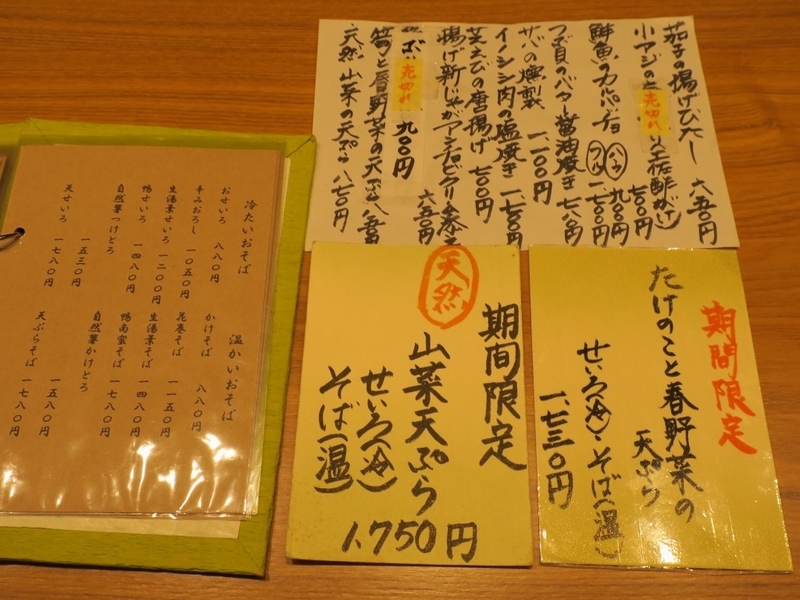 茄子の揚げびたし 六五〇円
小アジの 売切れ 土佐酢がけ 七〇〇円
鮮魚のカルパッチョ ハーフ 九〇〇円
フル 一、七〇〇円
つぶ貝のバター醤油焼き 七八〇円
サバの燻製 一、一〇〇円
イノシシ肉の塩焼き 一、七〇〇円
芝えびの唐揚げ 七〇〇円
揚げ新じゃがアンチョビクリームソース 六五〇円
売切れ 九〇〇円
筍と春野菜の天ぷら
天然山菜の天ぷら 八七〇円
期間限定
たけのこと春野菜の
天ぷら
せいろ(冷)・そば(温)
一、七三〇円
期間限定
天然
山菜天ぷら
せいろ(冷)
そば(温)
1,750円
冷たいおそば
おせいろ 八八〇円
辛みおろし 一〇五〇円
生湯葉せいろ 一二〇〇円
鴨せいろ 一四八〇円
自然薯つけとろ 一五三〇円
天せいろ 一七八〇円
温かいおそば
かけそば 八八〇円
花巻そば 一一五〇円
生湯葉そば 一四八〇円
鴨南蛮そば 一七八〇円
自然薯かけとろ 一五八〇円
天ぷらそば 一七八〇円